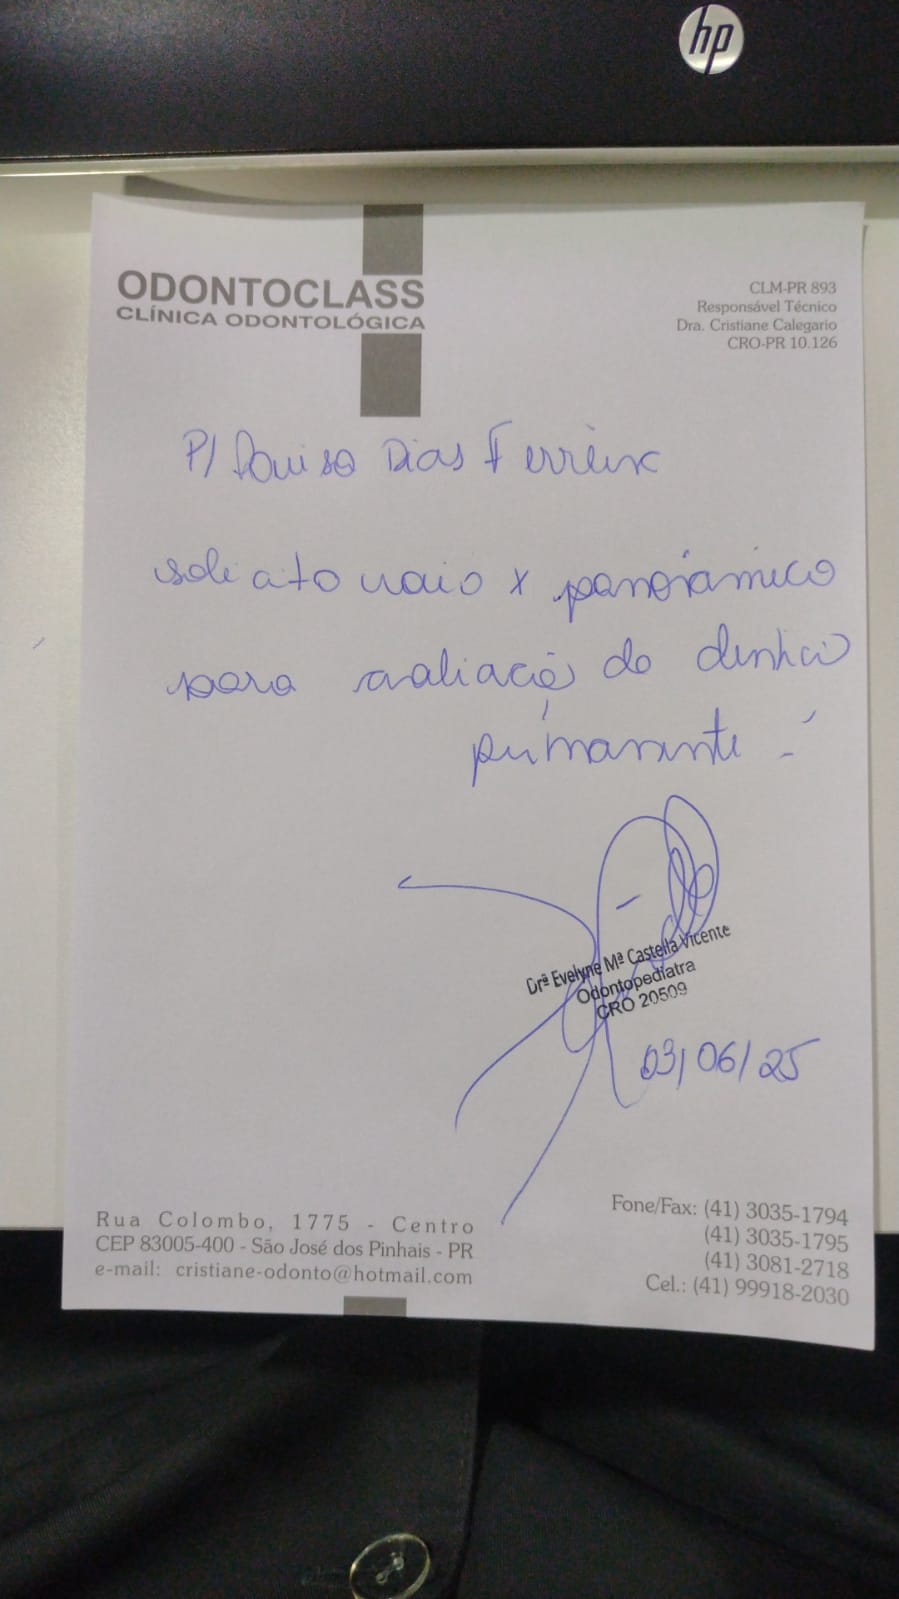 hp
ODONTOCLASS
CLÍNICA ODONTOLÓGICA
CLM-PR 893
Responsável Técnico
Dra. Cristiane Calegario
CRO-PR 10.126
P/ Dias Ferreira
solicito raio x panorâmico
para avaliação de
permanente
Drª Evelyne Mª Castella Vicente
Odontopediatra
CRO 20509
03/06/25
Rua Colombo, 1775 - Centro
CEP 83005-400 - São José dos Pinhais - PR
e-mail: cristiane-odonto@hotmail.com
Fone/Fax: (41) 3035-1794
(41) 3035-1795
(41) 3081-2718
Cel.: (41) 99918-2030